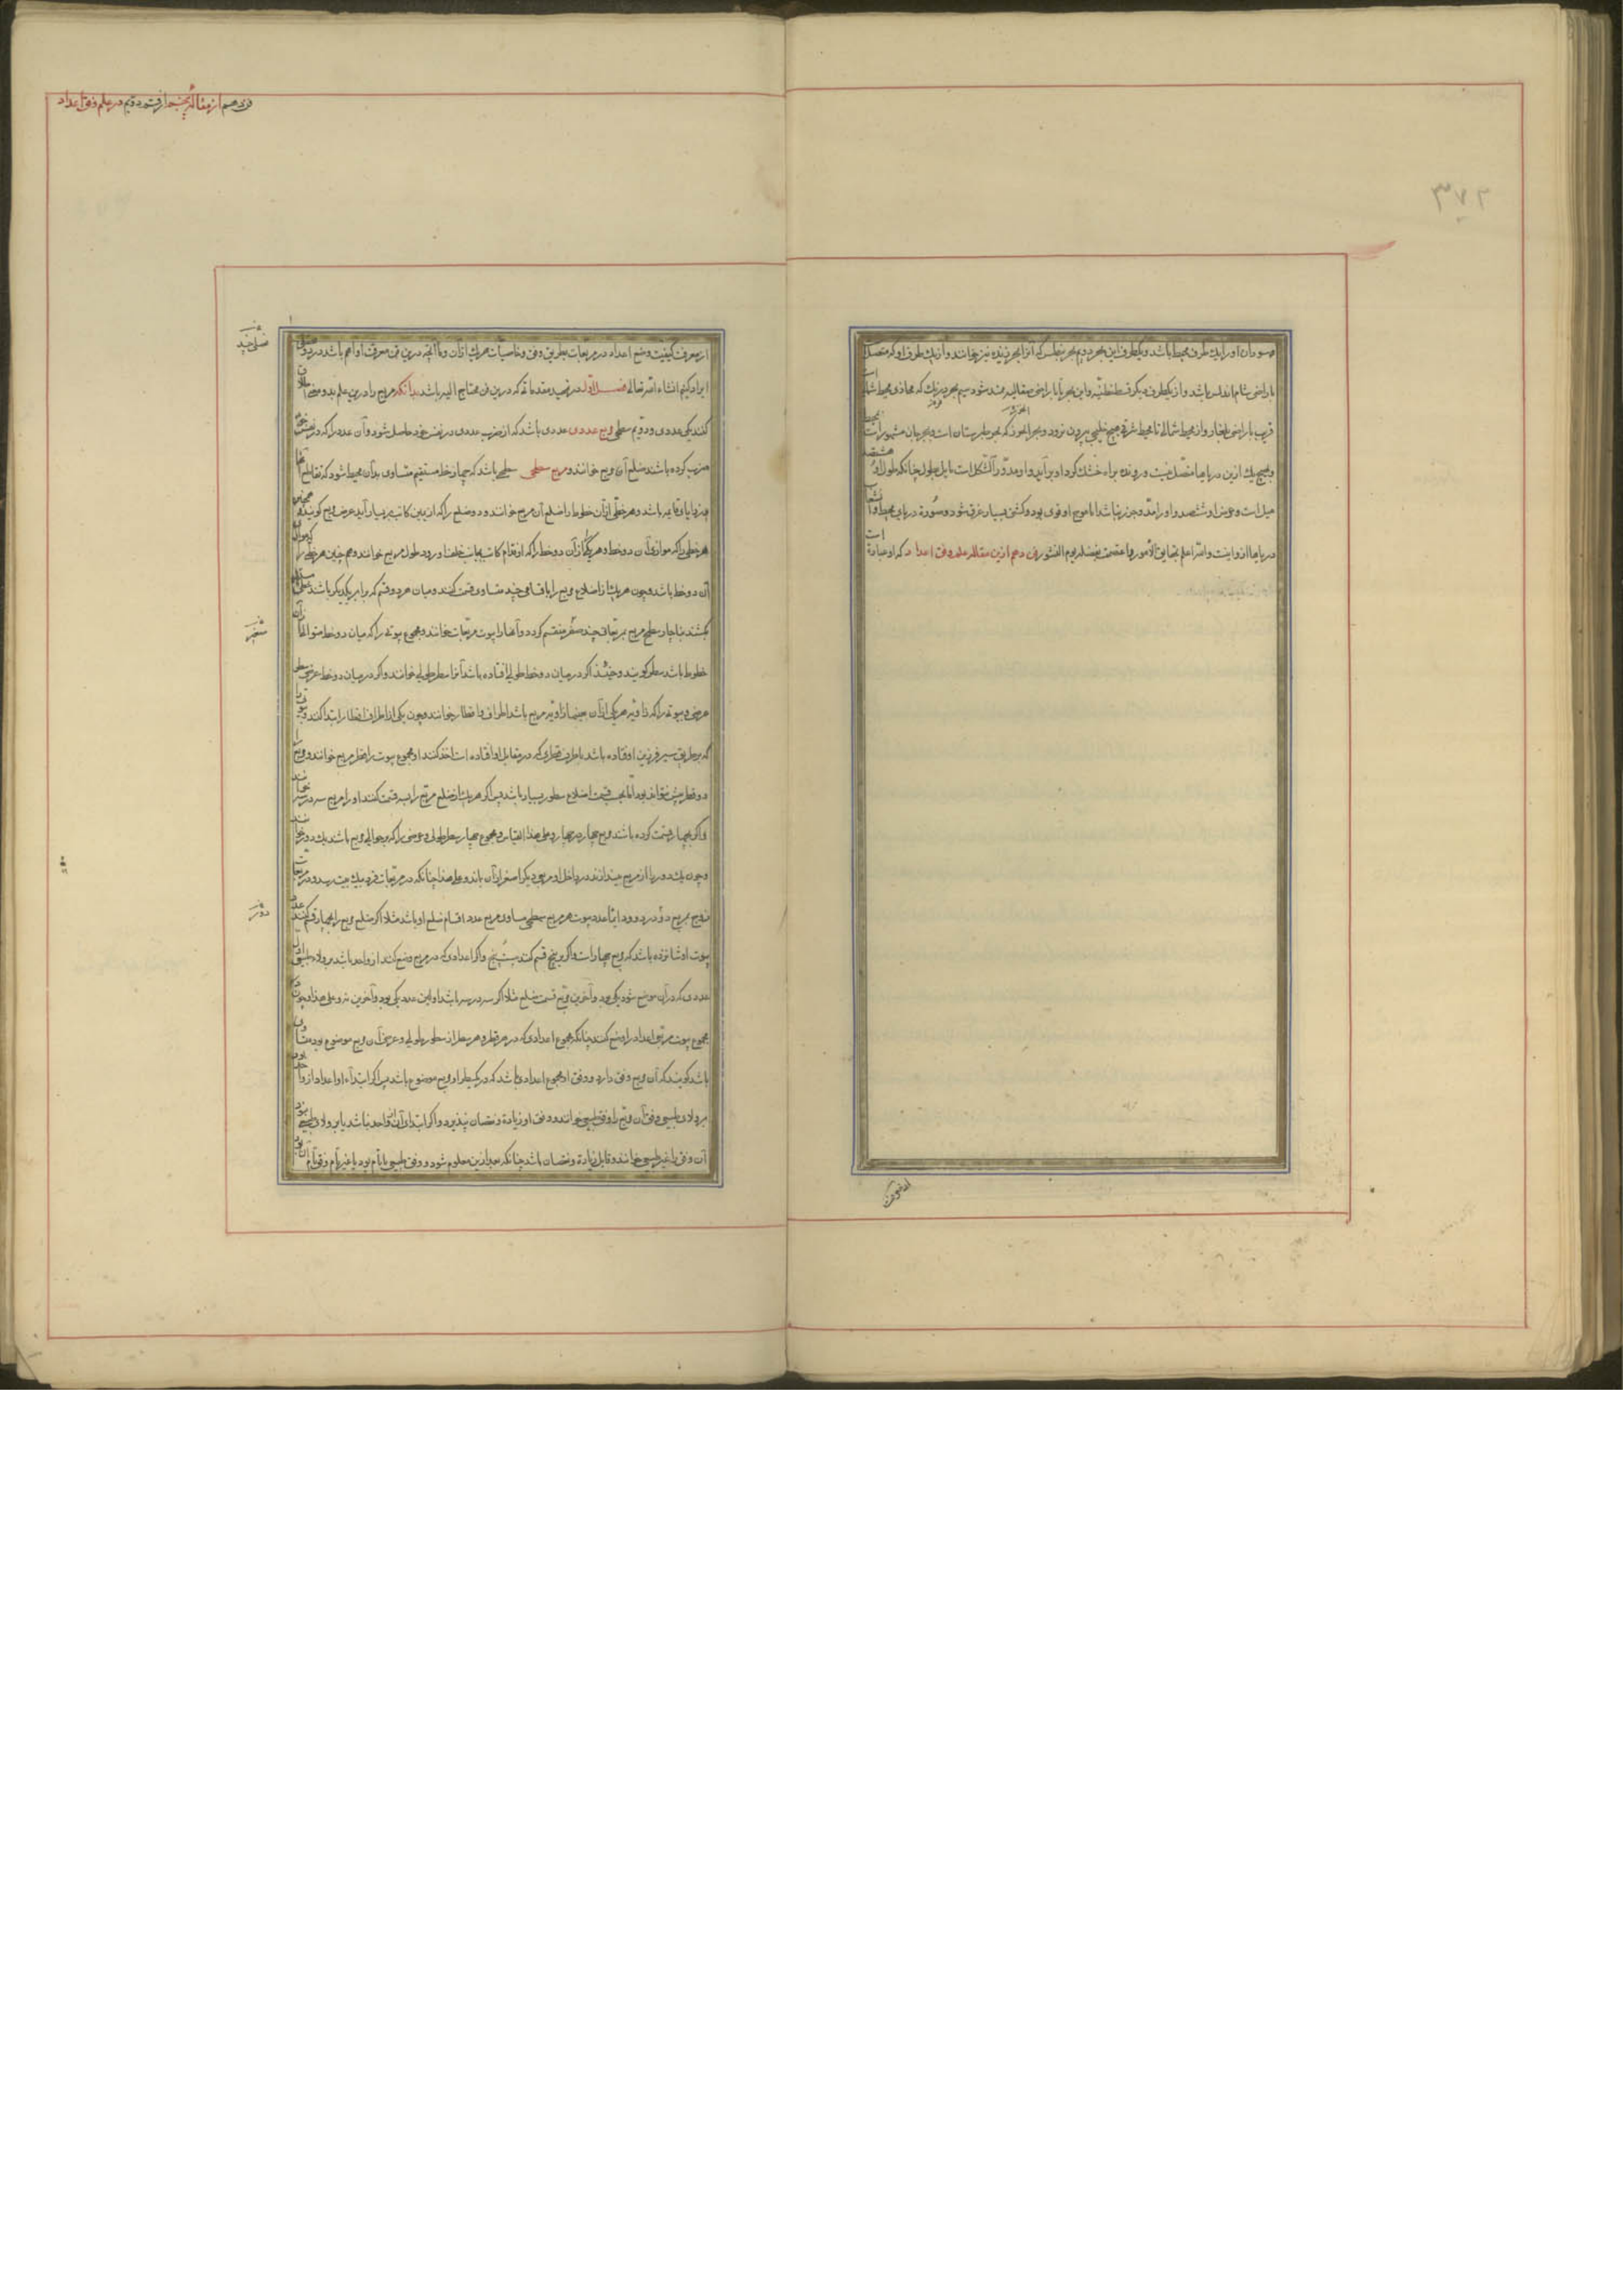 ۳۷۲
و سودان او را یك طرف محیط باشد و یکطرف این بحر دوم بحر بنطس که آنرا بحر نیز خوانند و از یك طرف او که متصل است
باراضی شام اندلس باشد و از یکطرف دیگر قسطنطنیّه و این بحر تا باراضی صقالبه ممتد شود سیم بحر ورنك که محاذی محیط شمالی
قریب باراضی بلغار و از محیط شمالی تا محیط شرقی هیچ خلیجی بیرون نرود و بحر الخزر که بحر طبرستان است و بحر جرجان مشهور است
و بهیچ یك ازین دریاها متصل نیست و رونده براه خشك گرد او برآید و او مدوّر الشکل است مایل بطول چنانکه طول او
میل است و عرض او ششصد و او را مدّ و جزر نباشد اما موج او قوی بود و کشتی بسیار غرق شود و دریای محیط و انشعاب
دریاها ازو اینست و الله اعلم بحقایق الأمور فن دهم از مقاله علم وفق اعداد که او عبارة است
از معرفت
فن دهم از مقاله پنجم از قسم دویم در علم وفق اعداد
از معرفت کیفیت وضع اعداد در مربعات بطریق وفق و خاصیات هر یك از آن و ما آنچه درین فن معرفت او اهم باشد در دو فصل
ایراد کنیم انشاء الله تعالی فصل اوّل در تمهید مقدماتی که درین فن محتاج الیه باشد بدانکه مربع را درین علم بدو معنی اطلاق
کنند یکی عددی و دویم سطحی مربع عددی عددی باشد که از ضرب عددی در نفس خود حاصل شود و آن عدد را که در نفس خود
ضرب کرده باشند ضلع آن مربع خوانند و مربع سطحی سطحی باشد که چهار خط مستقیم متساوی بدان محیط شود که تقاطع آنها
بر زوایای قایمه باشد و هر خطی از آن خطوط را ضلع آن مربع خوانند و دو ضلع را که از یمین کاتب به یسار آید عرض مربع گویند و همچنین
هر خطی را که موازی آن دو خط و هر یك از آن دو خط را که از قدام کاتب بجانب خلف او رود طول مربع خوانند و هم چنین هر خطی را که موازی
آن دو خط باشد و چون هر یك از اضلاع مربع را باقسامی چند متساوی قسمت کنند و میان هر دو قسم که برابر یکدیگر باشد خطی مستقیم
بکشند ناچار سطح مربع بمربعاتی چند صغر منقسم گردد و آنها را بیوت مربعات خوانند و مجموع بیوتی را که میان دو خط متوالی از آن
خطوط باشد سطر گویند و حینئذ اگر در میان دو خط طولی افتاده باشد آنرا سطر طولی خوانند و اگر در میان دو خط عرضی سطر
عرضی و بیوتی را که زاویه هر یکی از آن بعینها زاویه مربع باشد اطراف و اقطار خوانند و چون یکی از اطراف اقطار ابتدا کنند و بیوتی را
که بر طریق سیر فرزین او افتاده باشد باطراف قطری که در مقابل او افتاده است اخذ کنند او مجموع بیوت را قطر مربع خوانند و مربع را
دو قطر بیش نتواند بود امّا بحسب قسمت اضلاع سطور بسیار باشد پس اگر هر یك از ضلع مربع را بسه قسمت کنند او را مربع سه در سه خوانند
و اگر بچهار قسمت کرده باشند مربع چهار در چهار و علی هذا القیاس و مجموع چهار سطر طولی و عرضی را که بر حوالی مربع باشد یك دور خوانند
و چون یك دور را از مربع بیندازند در داخل او مربعی دیگر اصغر از آن بماند و علی هذا چنانکه در مربعات فرد بیك بیت رسد و در مربعات
زوج بمربع دو در دو و دایما عدد بیوت هر مربع سطحی مساوی مربع عدد اقسام ضلع او باشد مثلا اگر ضلع مربع را بچهار قسم کنند عدد
بیوت او شانزده باشد که مربع چهار است و اگر به پنج قسم کنند بیست پنج و اگر اعدادی که در مربع وضع کنند از واحد باشد بر ولاء طبیعی اول
عددی که در آن موضع شود یکی بود و آخرین مربع قسمت ضلع مثلا اگر سه در سه باشد اولین عدد یکی بود و آخرین نه و علی هذا و چون در
مجموع بیوت مربعی اعداد را وضع کنند چنانکه مجموع اعدادی که در هر قطر و هر سطر از سطور طولی و عرضی آن مربع موضوع بود متساوی
باشد گویند که آن مربع وفق دارد و وفق او مجموع اعدادی باشد که در یك سطر او مربع موضوع باشد پس اگر ابتداء او اعداد از واحد بود
بر ولای طبیعی وفق آن مربع را وفق طبیعی خوانند و وفق او زیادة و نقصان نپذیرد و اگر ابتدای آن از واحد نباشد یا بر ولای طبیعی نبود
آن وفق را غیر طبیعی خوانند و قابل زیادة و نقصان باشد چنانکه بعد ازین معلوم شود و وفق طبیعی یا تام بود یا غیر تام وفق تام آن بود